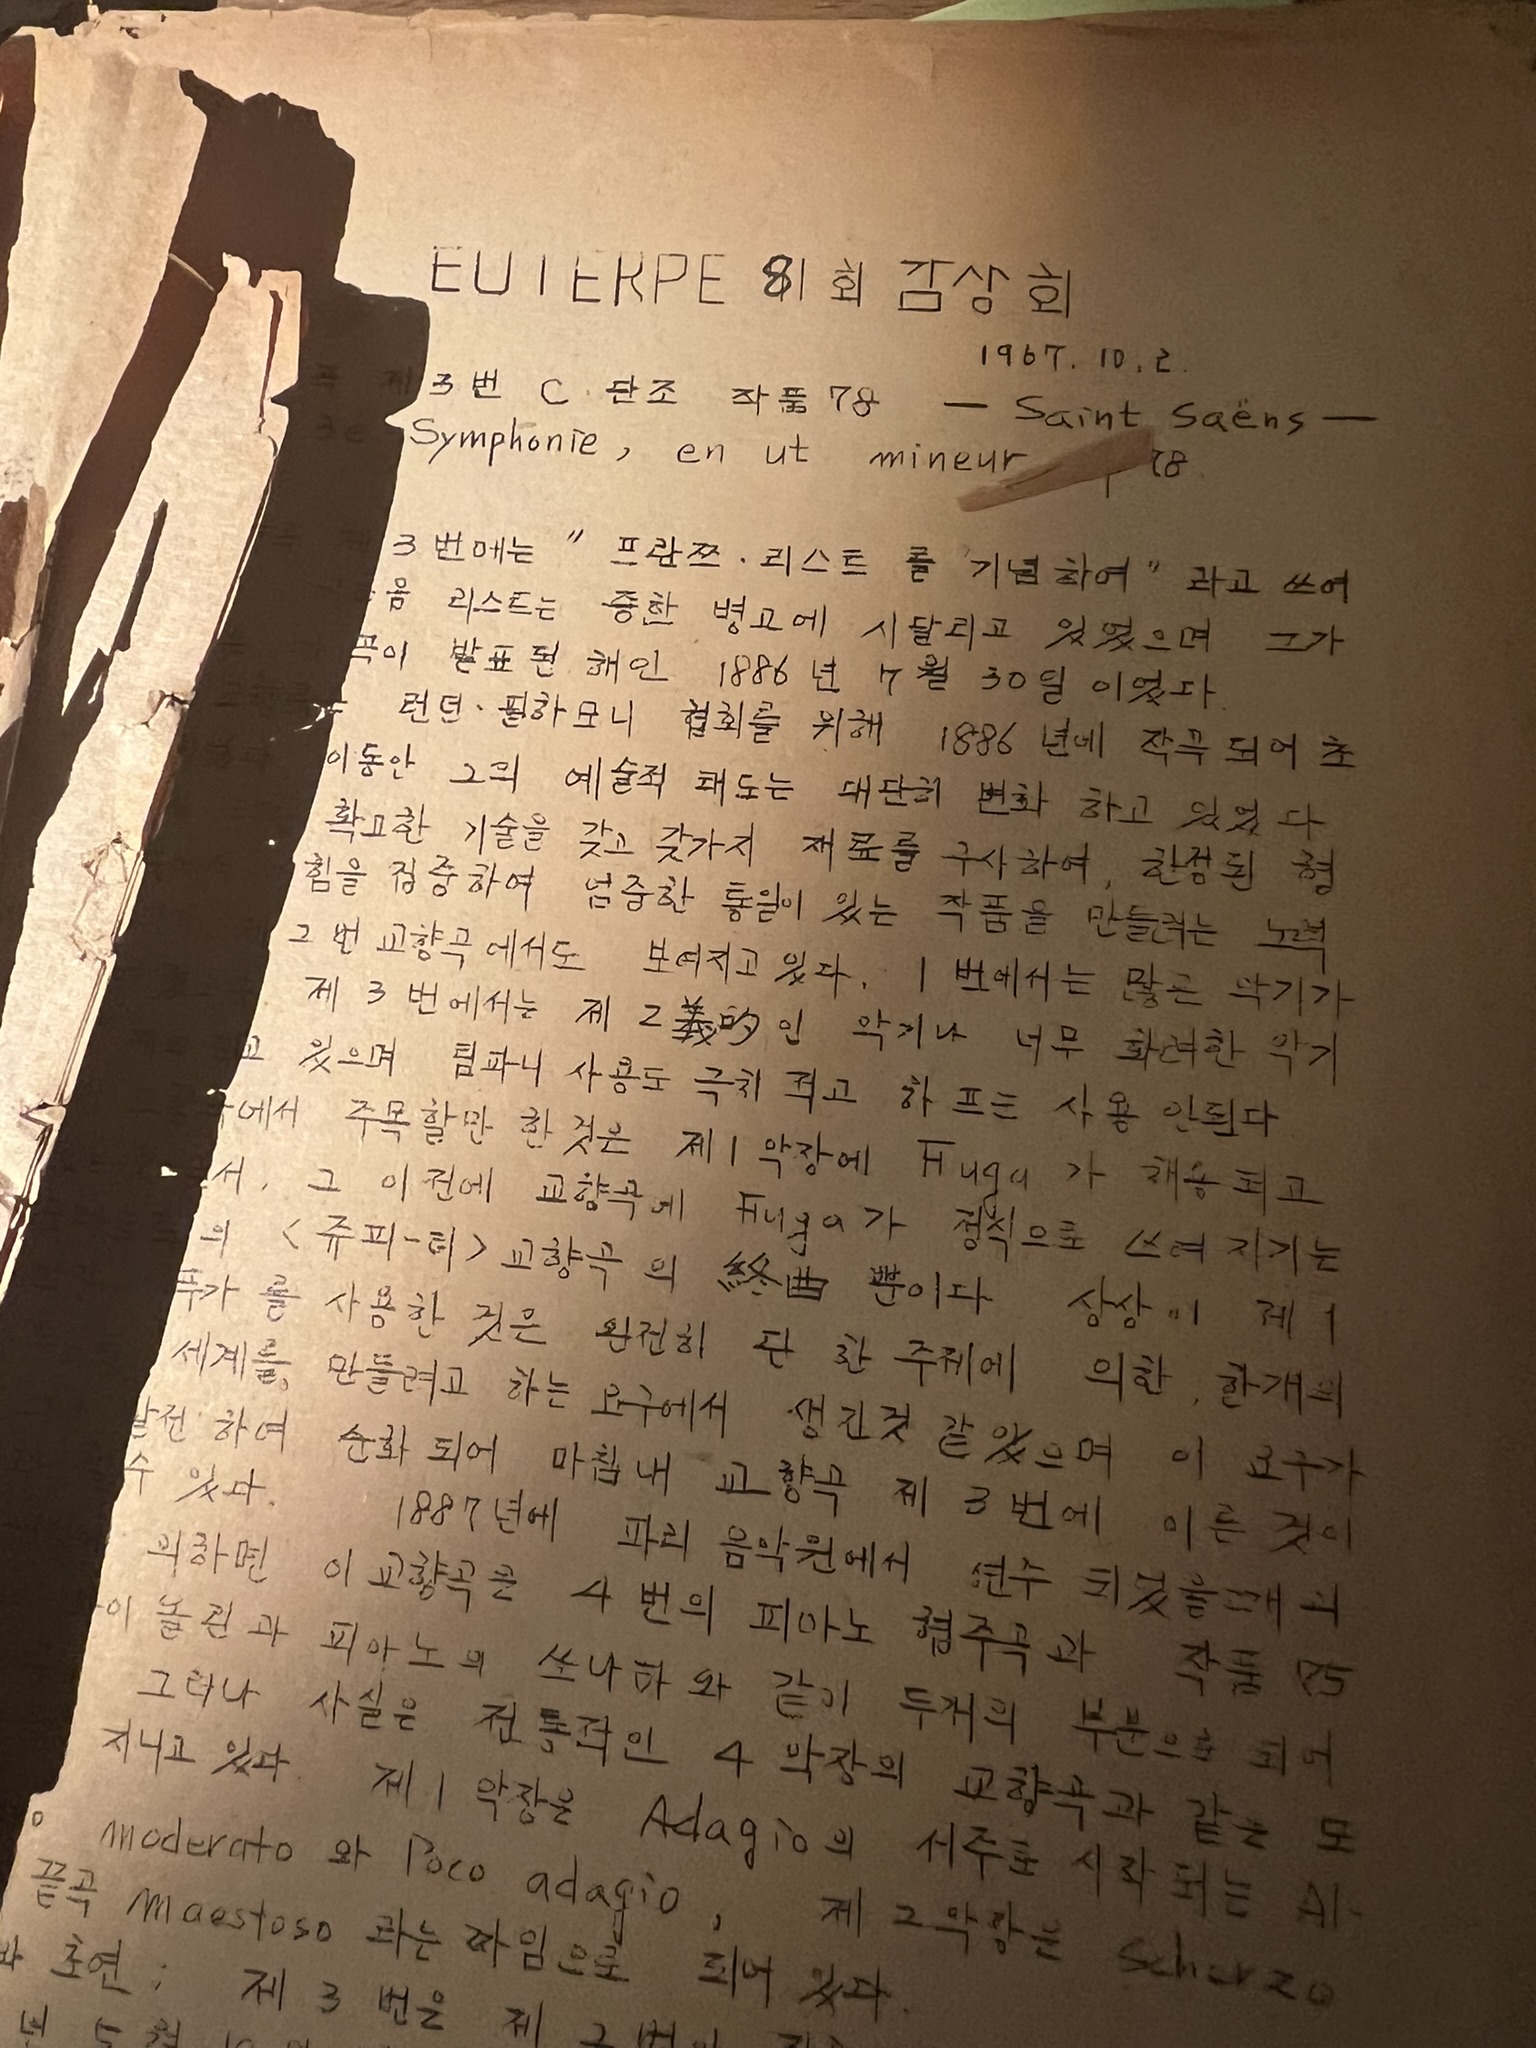 EUTERPE 81회 감상회
1967. 10. 2.
제 3번 C 단조 작품 78 — Saint Saëns —
3e Symphonie, en ut mineur 78
제 3번에는 "프란쯔·리스트를 기념하여" 라고 쓰여
리스트는 중한 병고에 시달리고 있었으며 그가
곡이 발표된 해인 1886년 7월 30일 이었다.
런던·필하모니 협회를 위해 1886년에 작곡되어 초
이동안 그의 예술적 태도는 대단히 변화 하고 있었다
확고한 기술을 갖고 갖가지 재료를 구사하여, 한정된 형
힘을 집중하여 엄중한 통일이 있는 작품을 만들려는 노력
2번 교향곡에서도 보여지고 있다. 1번에서는 많은 악기가
제 3번에서는 제 2義的인 악기나 너무 화려한 악기
고 있으며 팀파니 사용도 극히 적고 하프는 사용 안된다
에서 주목할만 한 것은 제1악장에 Fuga가 채용되고
서, 그 이전에 교향곡에 Fuga가 정식으로 쓰여지기는
의 <쥬피-터> 교향곡의 終曲 뿐이다 상상이 제 1
푸가를 사용한 것은 완전히 단 한 주제에 의한, 한개의
세계를 만들려고 하는 요구에서 생긴것 같았으며 이 요구가
발전하여 순화되어 마침내 교향곡 제 3번에 이른 것이
수 있다. 1887년에 파리 음악원에서 연주 되었을때의
의하면 이 교향곡은 4번의 피아노 협주곡과 작품 75
이올린과 피아노의 쏘나타와 같이 두개의 부분으로 되어
그러나 사실은 전통적인 4악장의 교향곡과 같은 모
지니고 있다. 제1악장은 Adagio의 서주로 시작되는 Al-
moderato 와 Poco adagio, 제 2악장은 Scherzo
끝곡 Maestoso 라는 짜임으로 되어 있다.
초연 : 제 3번은 제 2번의
년 5월